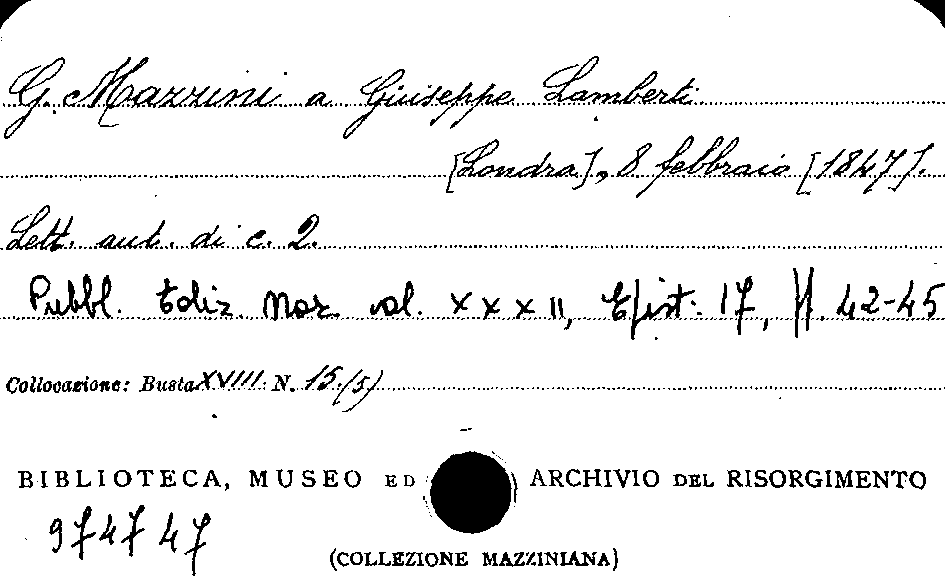 G. Mazzini a Giuseppe Lamberti
[Londra], 8 febbraio [1847].
Lett. aut. di c. 2.
Pubbl. Ediz. Naz. vol. XXXII, Epist. 17, pp. 42-45
Collocazione: Busta XVIII N. 15.(5)
BIBLIOTECA, MUSEO ED ARCHIVIO DEL RISORGIMENTO
974747
(COLLEZIONE MAZZINIANA)